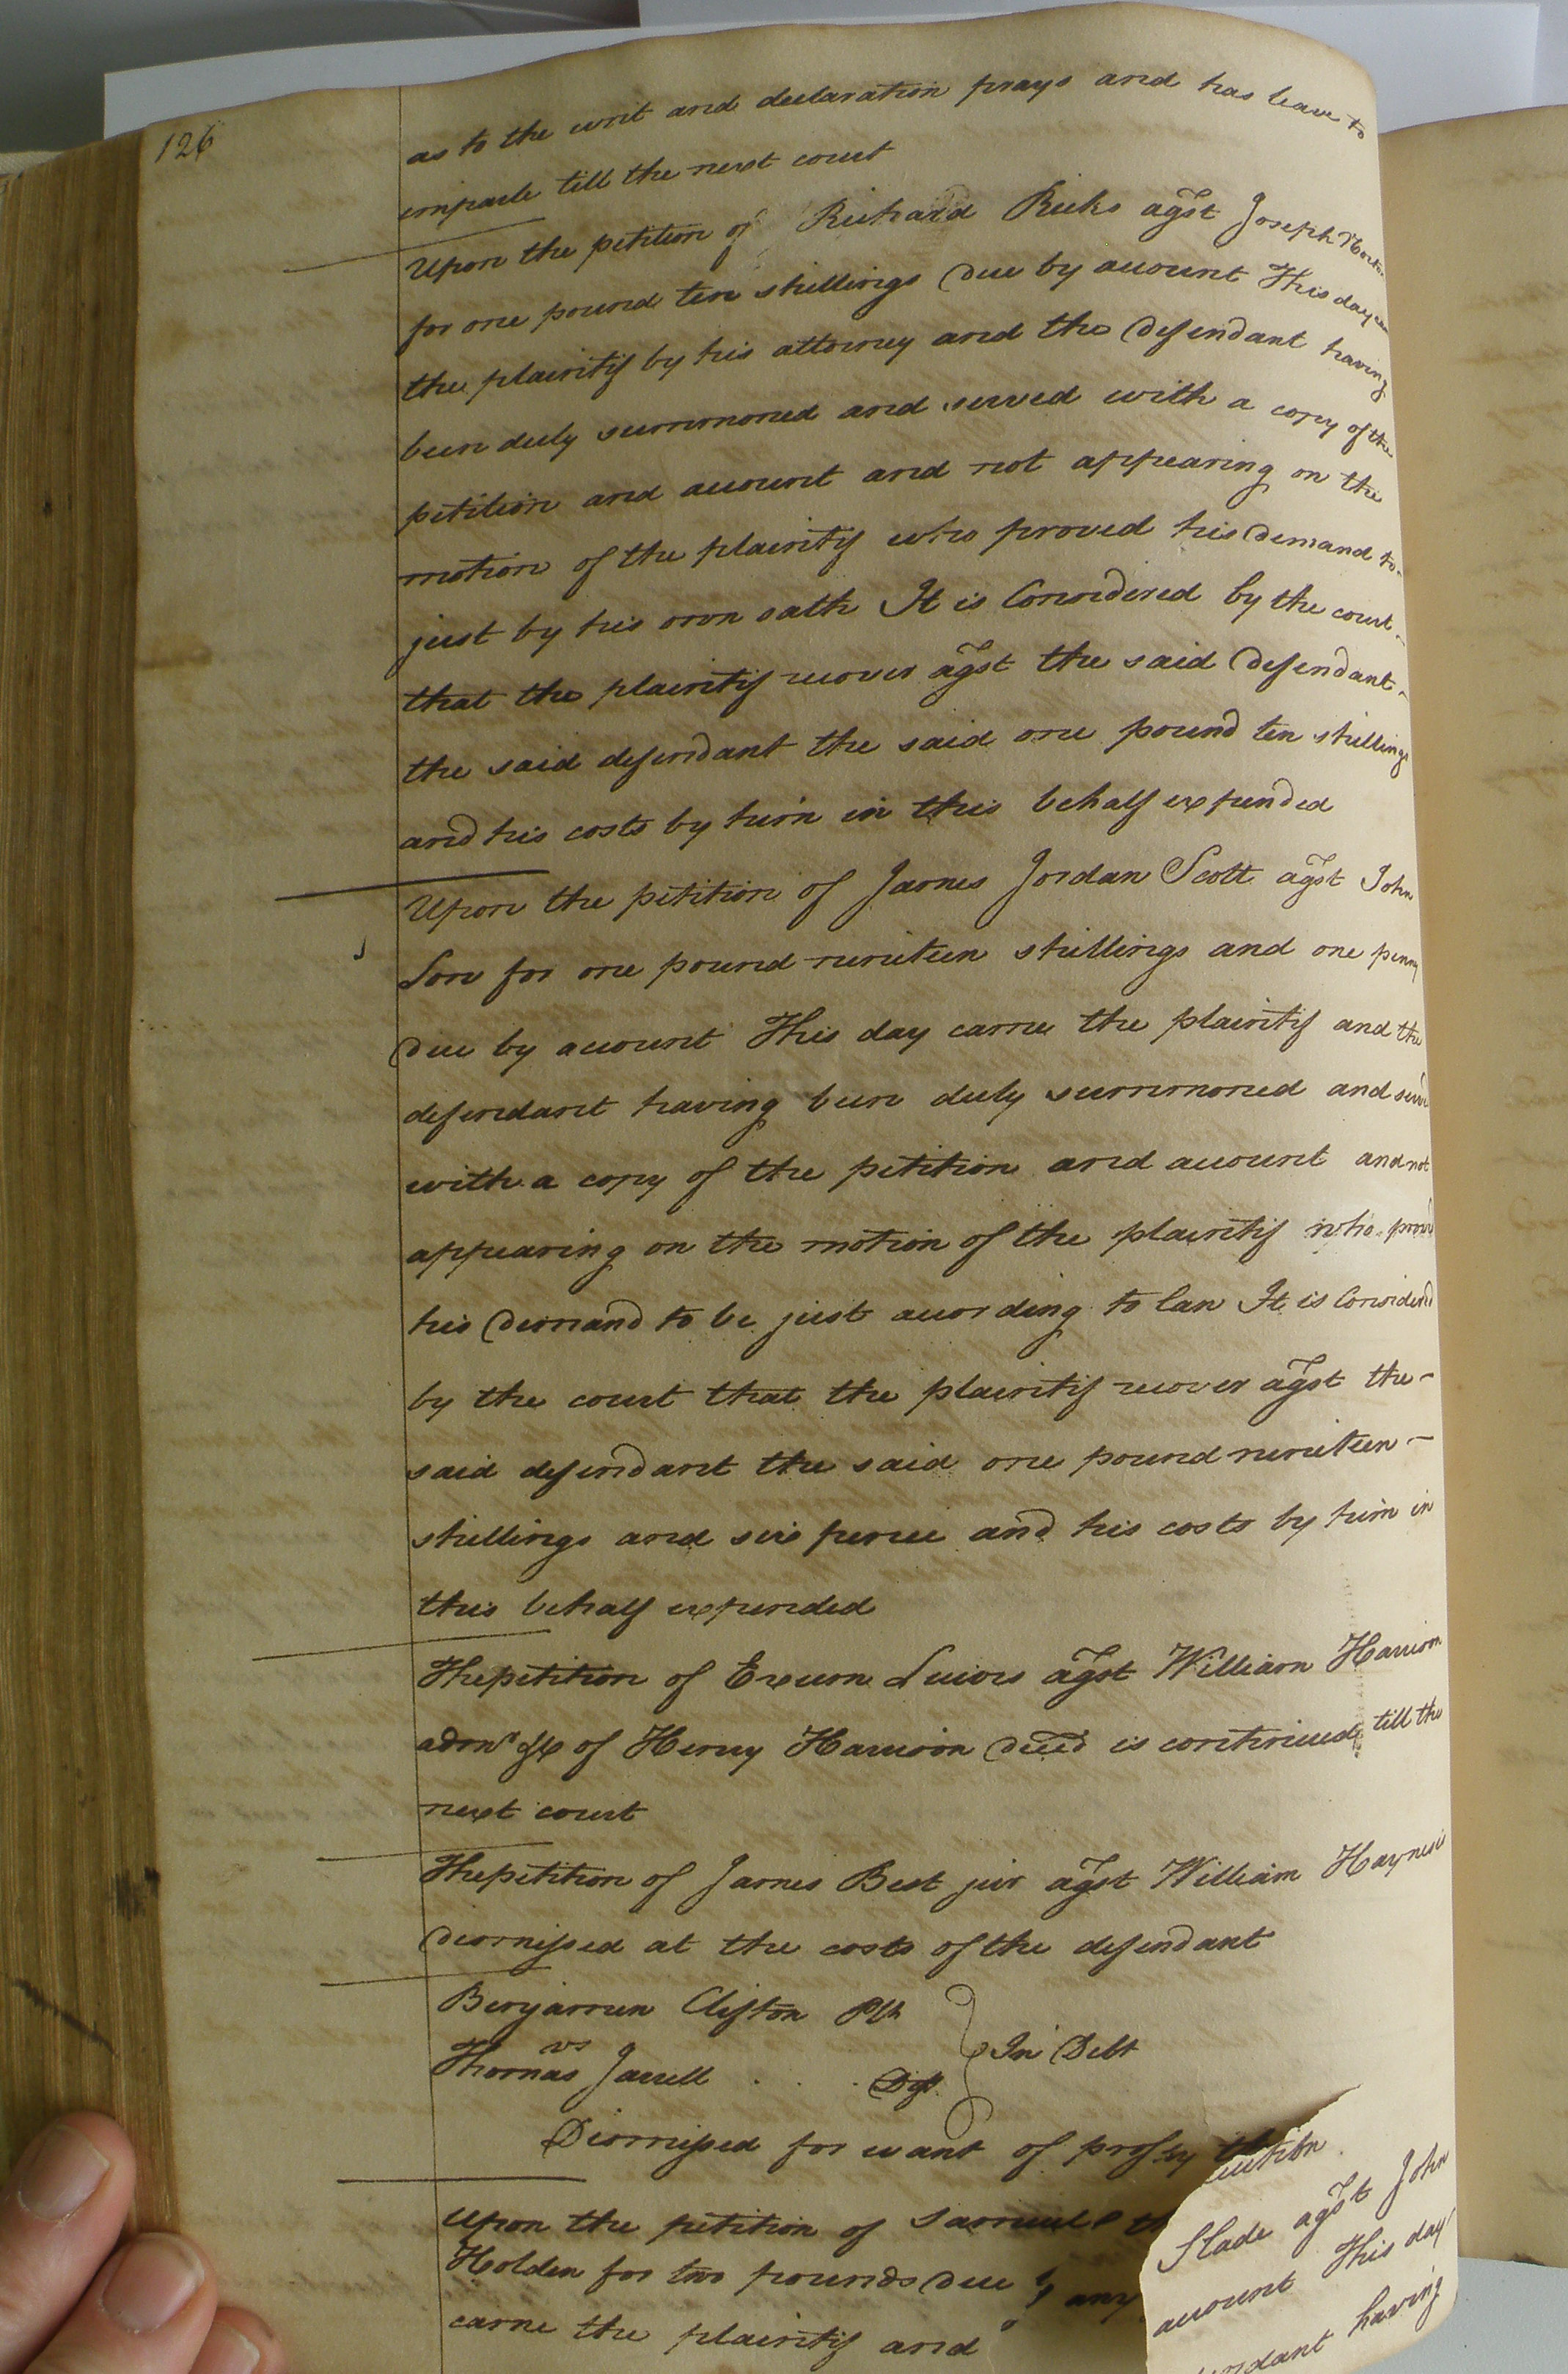 126
as to the writ and declaration prays and has leave to
imparle till the next court
Upon the petition of Richard Ricks agst Joseph
for one pound ten shillings due by account This day
the plaintif by his attorney and the defendant having
been duly summoned and served with a copy of the
petition and account and not appearing on the
motion of the plaintif who proved his demand to
just by his own oath It is Considered by the court
that the plaintif recover agst the said defendant
the said defendant the said one pound ten shillings
and his costs by him in this behalf expended
Upon the petition of James Jordan Scott agst John
for one pound nineteen shillings and one penny
due by account This day came the plaintif and the
defendant having been duly summoned and
with a copy of the petition and account and not
appearing on the motion of the plaintif who
his demand to be just according to law It is Considered
by the court that the plaintif recover agst the
said defendant the said one pound nineteen
shillings and six pence and his costs by him in
this behalf expended
The petition of Exum Lewis agst William Harrison
admr &c of Henry Harrison decd is continued till the
next court
The petition of James Best jur agst William Haynes is
dismissed at the costs of the defendant
Benjamin Clifton Plt
vs In Debt
Thomas Jarrell Dft
Dismissed for want of
Upon the petition of Samuel Slade agst John
Holden for two pounds due account This day
came the plaintif and having